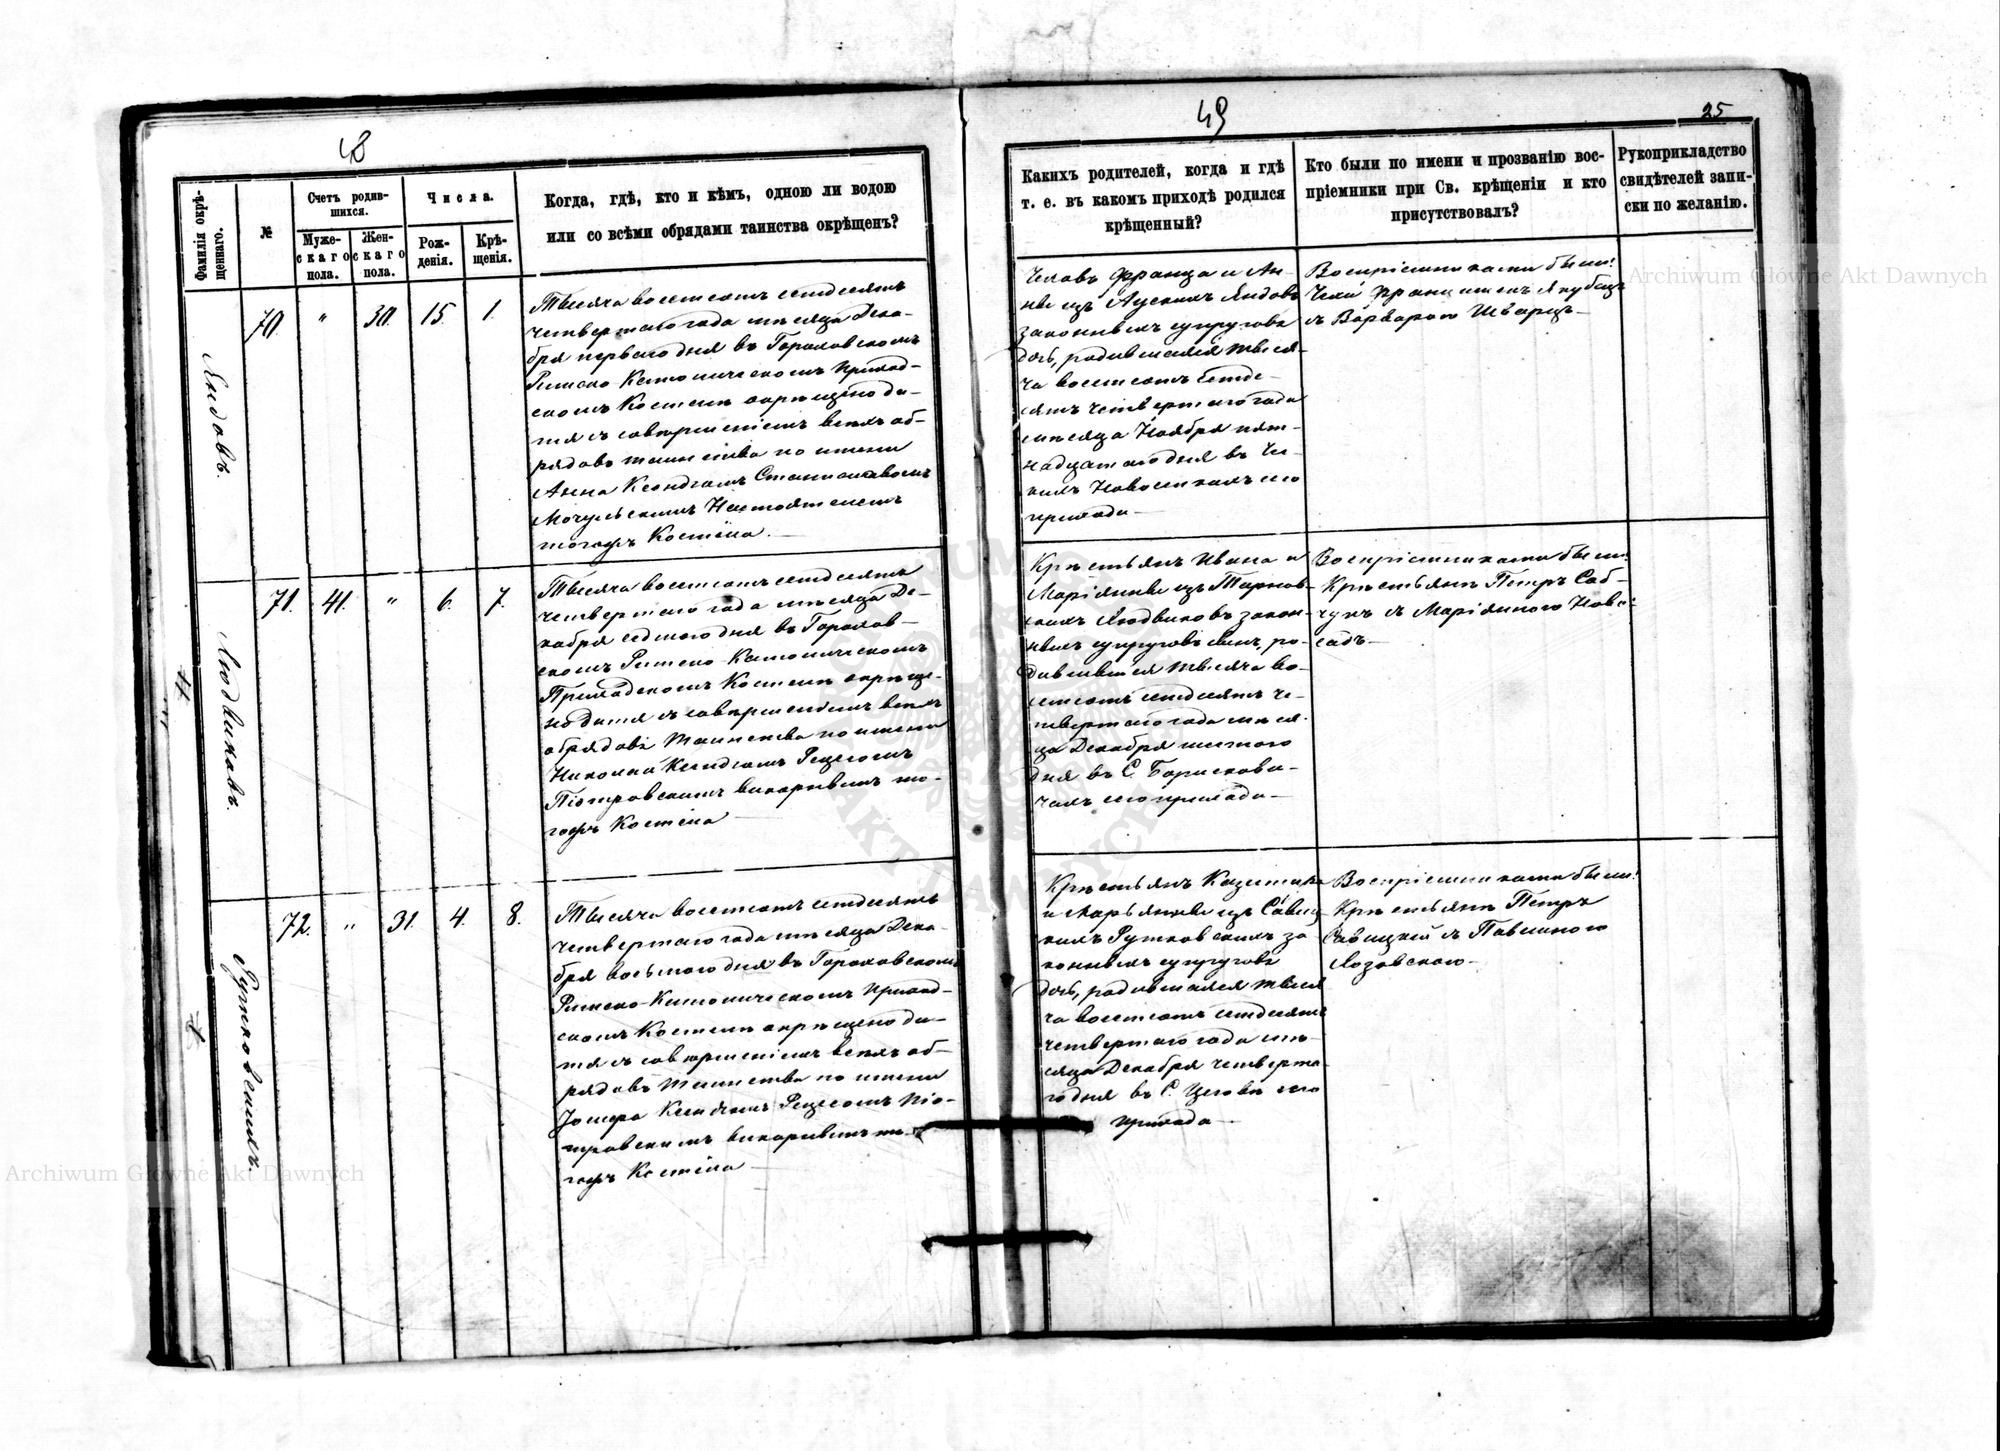 48
Фамилія окрѣ-
щеннаго.
№
Счетъ родив-
шихся.
Муже-
скаго
пола.
Жен-
скаго
пола.
Числа.
Рож-
денія.
Крѣ-
щенія.
Когда, гдѣ, кто и кѣмъ, одною ли водою
или со всѣми обрядами таинства окрѣщенъ?
70. " 30. 15. 1.
Тысяча восемсотъ семдесятъ
четвертаго года мѣсяца Дека-
бря перваго дня въ Гороховскомъ
Римско-Католическомъ Приход-
скомъ Костелѣ окрѣщено ди-
тя съ совершеніемъ всѣхъ об-
рядовъ таинства по имени
Анна Ксендзомъ Станиславомъ
Мочульскимъ Настоятелемъ
тогожъ Костёла.
71. 41. " 6. 7.
Людвиковъ.
Тысяча восемсотъ семдесятъ
четвертаго года мѣсяца Де-
кабря седмого дня въ Горохов-
скомъ Римско-Католическомъ
Приходскомъ Костелѣ окрѣще-
но дитя съ совершеніемъ всѣхъ
обрядовъ Таинства по имени
Николай Ксендзомъ
Піотровскимъ викарнымъ то-
гожъ Костела
72. " 31. 4. 8.
Рутковскихъ.
Тысяча восемсотъ семдесятъ
четвертаго года мѣсяца Дека-
бря восьмого дня въ Гороховскомъ
Римско-Католическомъ Приход-
скомъ Костелѣ окрѣщено ди-
тя съ совершеніемъ всѣхъ об-
рядовъ Таинства по имени
Ксендзомъ Піо-
тровскимъ викарнымъ то-
гожъ Костёла
49
25
Какихъ родителей, когда и гдѣ
т. е. въ какомъ приходѣ родился
крѣщенный?
Кто были по имени и прозванію вос-
пріемники при Св. крѣщеніи и кто
присутствовалъ?
Рукоприкладство
свидѣтелей запи-
ски по желанію.
Чеховъ Франца и Ан-
ны изъ Яндовъ
законныхъ супруговъ
дочь, родившаяся тыся-
ча восемсотъ семде-
сятъ четвертаго года
мѣсяца Ноября пят-
надцатого дня въ
его
прихода
Воспріемниками были:
Чехи Францишекъ Якубецъ
съ Варварою Шварцъ
Крѣстьянъ Ивана и
Маріянны изъ Тарнов-
скихъ Людвиковъ закон-
ныхъ супруговъ сынъ, ро-
дившійся тысяча во-
семсотъ семдесятъ че-
твертаго года мѣся-
ца Декабря шестого
дня въ С. Борискови-
чахъ сего прихода
Воспріемниками были:
Крѣстьянъ Петръ Саб-
чукъ съ Маріянною Ново-
садъ
Крѣстьянъ Казимира
и Марьянны изъ Савиц-
кихъ Рутковскихъ за-
конныхъ супруговъ
дочь, родившаяся тыся
ча восемсотъ семдесятъ
четвертаго года мѣ-
сяца Декабря четверта-
го дня въ С. Цеговѣ сего
прихода
Воспріемниками были:
Крѣстьянъ Петръ
Савицкій съ Павлиною
Лозовскою
Archiwum Główne Akt Dawnych
Archiwum Główne Akt Dawnych